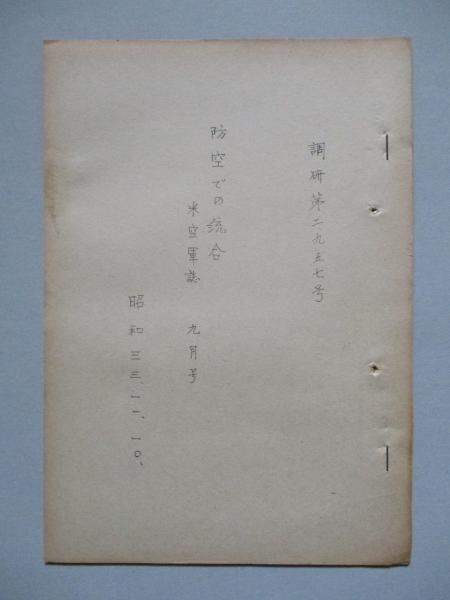 調研第二九五七号
防空での統合
米空軍誌 九月号
昭和三三、一一、一〇、